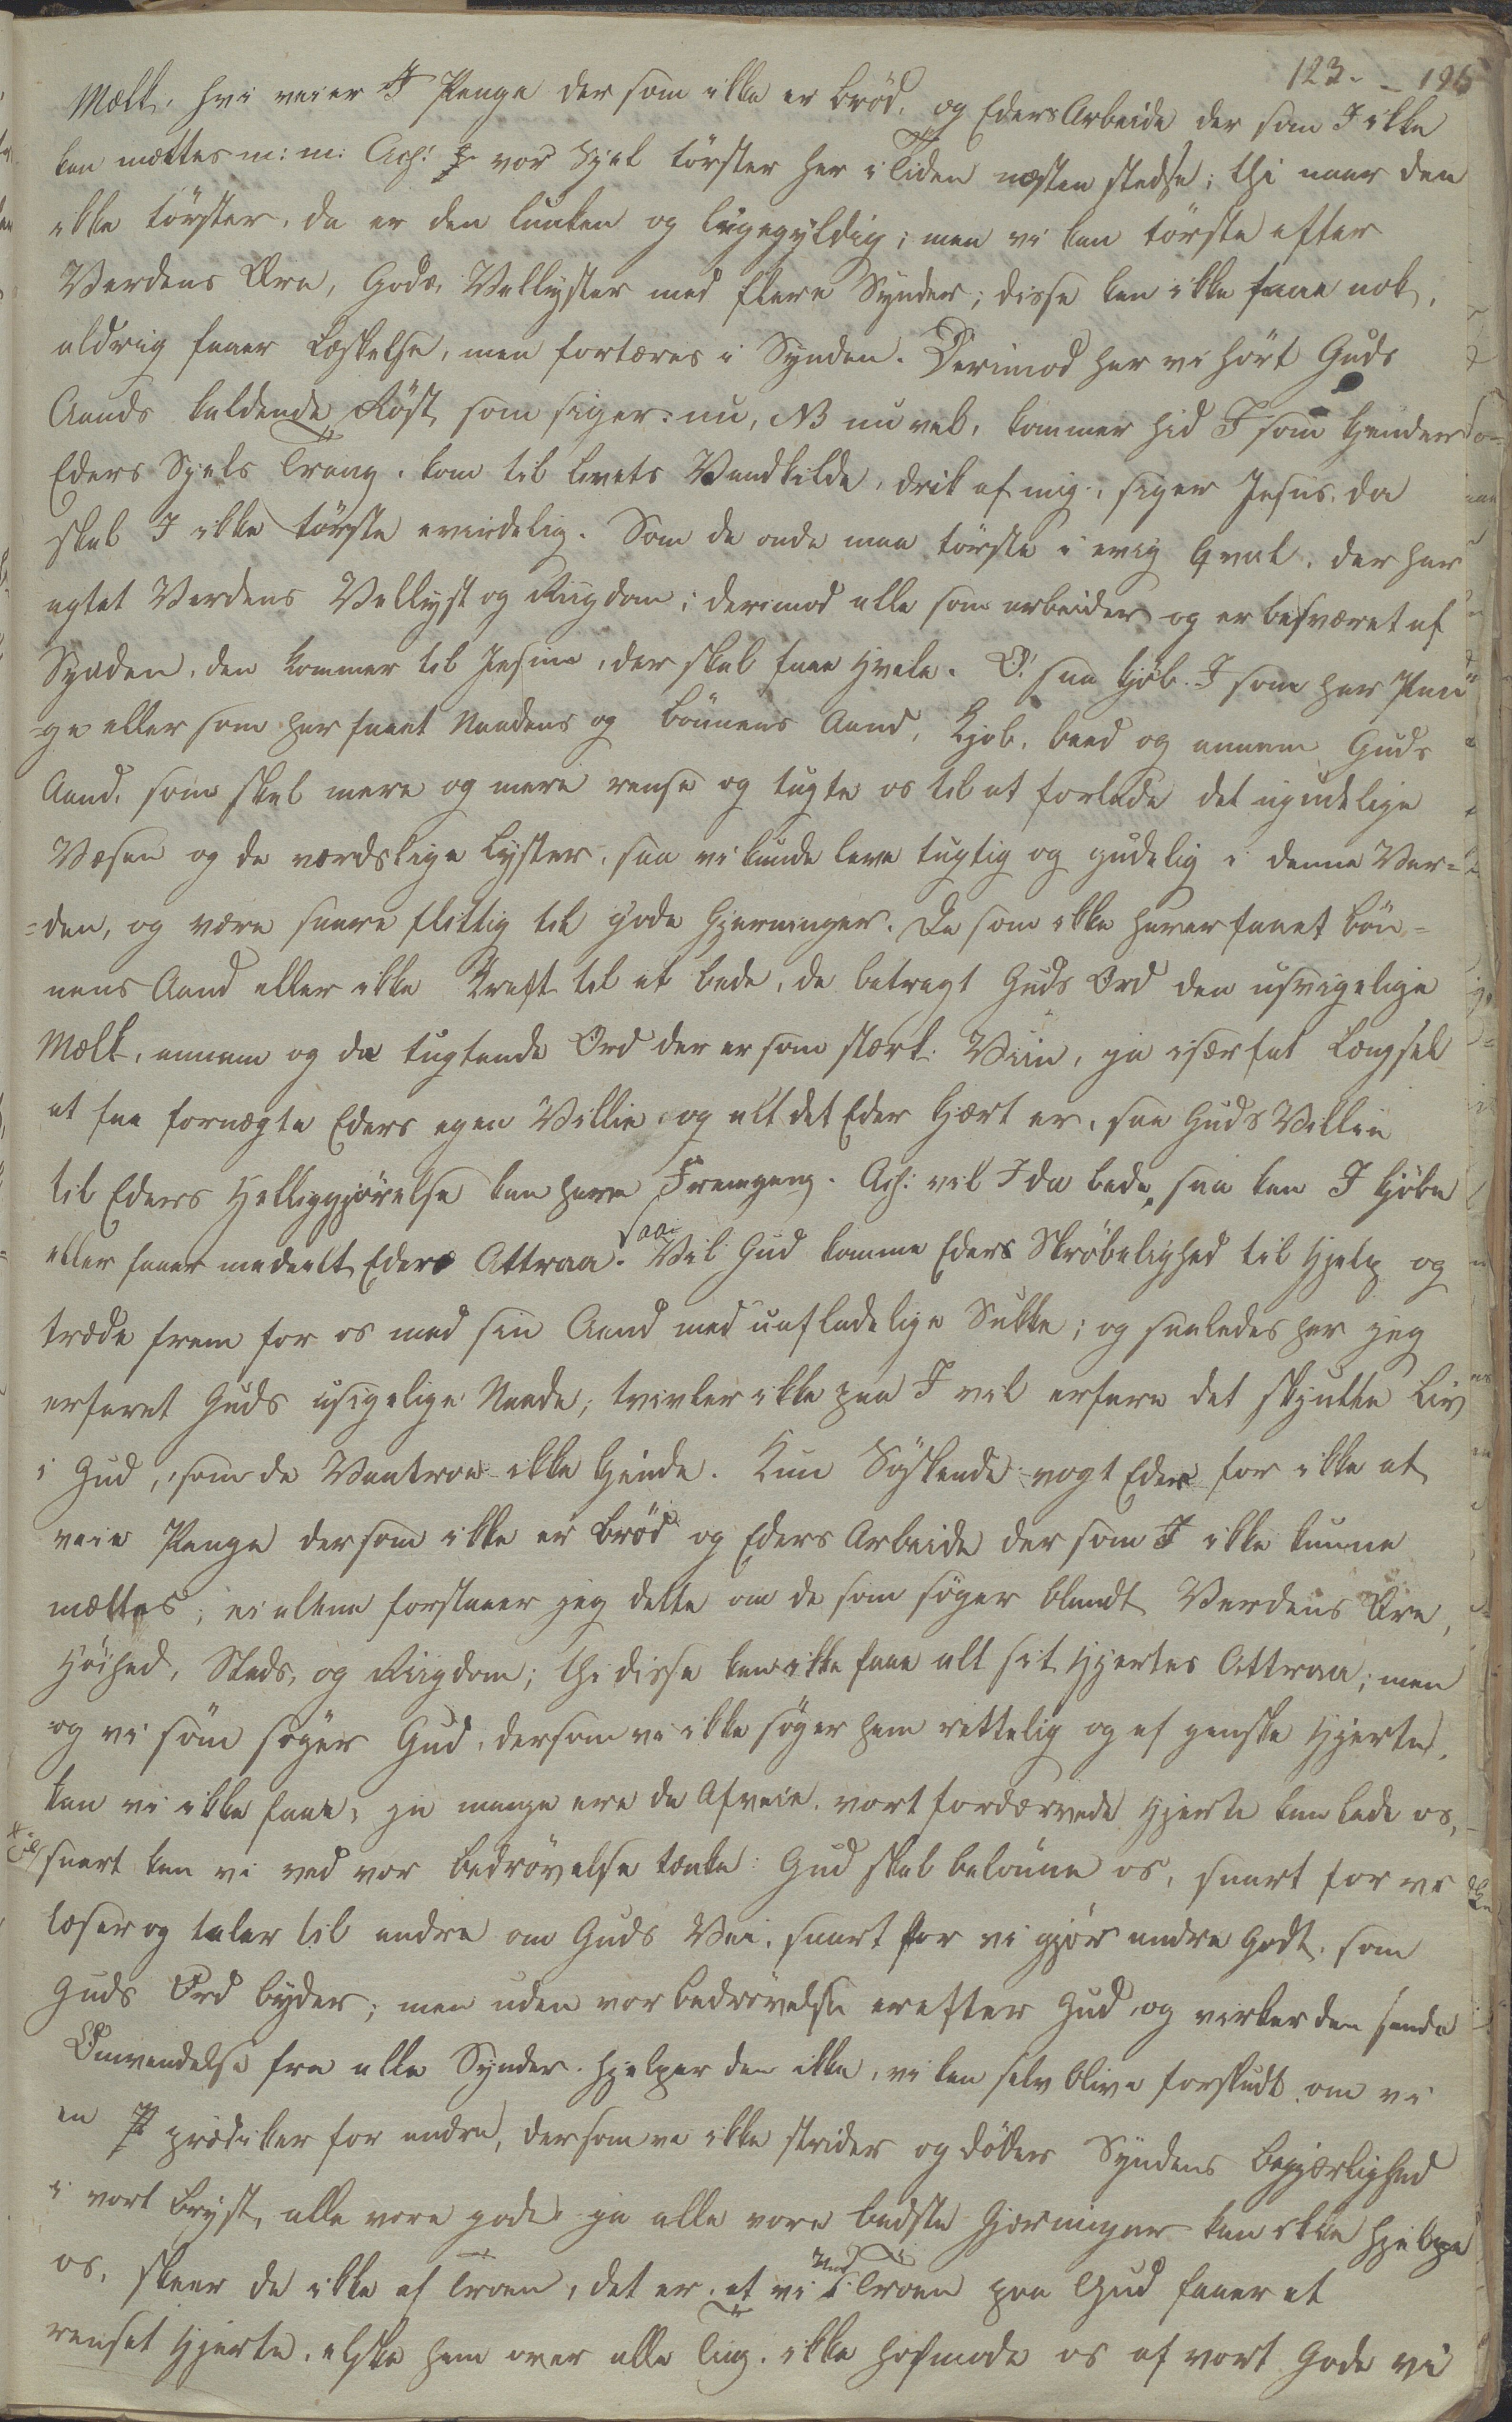 123. – 196
Mælk, hvi veier I Penge der som ikke er Brød, og Eders Arbeide der som I ikke
kan mættes m: m: Ach! vor Sjel tørster her i Tiden næsten stedse; thi naar den
ikke tørster, da er den lunken og ligegyldig; men vi kan tørste efter
Verdens Ære, Gods, Vellyster med flere Synder; disse kan ikke faae nok,
aldrig faaer Læskelse, men fortæres i Synden. Derimod har vi hørt Guds
Aands kaldende Røst, som siger: nu, NB nu vel, kommer hid I som kjender
Eders Sjels Trang, kom til Livets Vandkilde, drik af mig, siger Jesus, da
skal I ikke tørste evindelig. Som de onde maa tørste i evig Qval, der har
agtet Verdens Vellyst og Rigdom; derimod alle som arbeider og er besværet af
Synden, den kommer til Jesum, der skal faae Hvile. O! saa kjøb I som har Pen-
ge eller som har faaet Naadens og Bønnens Aand, Kjøb, beed og annam Guds
Aand, som skal mere og mere rense og tugte os til at forlade det ugudelige
Væsen og de verdslige Lyster, saa vi kunde leve tugtig og gudelig i denne Ver=
=den, og være saare flittig til gode Gjerninger. De som ikke haver faaet Bøn=
nens Aand eller ikke Kraft til at bede, de betragt Guds Ord den usvigelige
Mælk, annam og de tugtende Ord der er som stærk Viin, ja især fat Længsel
at faa fornægte Eders egen Villie og alt det Eder Kjært er, saa Guds Villie
til Eders Helliggjørelse kan have Fremgang. Ach! vil I da bede, saa kan I kjøbe
eller faaer medeelt Eders Attraa. Saa Vil Gud komme Eders Skrøbelighed til Hjelp og
træde frem for os med sin Aand med uafladelige Sukke; og saaledes har jeg
erfaret Guds usigelige Naade; tvivler ikke paa I vil erfare det skjulte Liv
i Gud, som de Vantroe ikke kjende. Kun Søskende vogt Eder for ikke at
veie Penge der som ikke er Brød og Eders Arbeide der som I ikke kunne
mættes; ei alene forstaaer jeg dette om de som søger blandt Verdens Ære,
Høihed, Stads, og Rigdom; thi disse kan ikke faae alt sit Hjertes Attraa; men
og vi som søger Gud, dersom vi ikke søger ham rettelig og af ganske Hjerte,
kan vi ikke faae, ja mange ere de Afveie vort fordærvede Hjerte kan lede os,
snart kan vi ved vor Bedrøvelse tænke: Gud skal belønne os, snart for vi
læser og taler til andre om Guds Vei, snart for vi gjør andre Godt, som
Guds Ord byder; men uden vor Bedrøvelse er efter Gud, og virker den sande
Omvendelse fra alle Synder, hjelper den ikke, vi kan selv blive forskudt om vi
en prædiker for andre, dersom vi ikke strider og døder Syndens Begjærlighed
i vort Bryst, alle vore gode ja alle vore bedste Gjerninger kan ikke hjelpe
os, skeer de ikke af Troen, det er, at vi ved Troen paa Gud faaer et
renset Hjerte, elske ham over alle Ting, ikke hofmode os af vort Gode vi